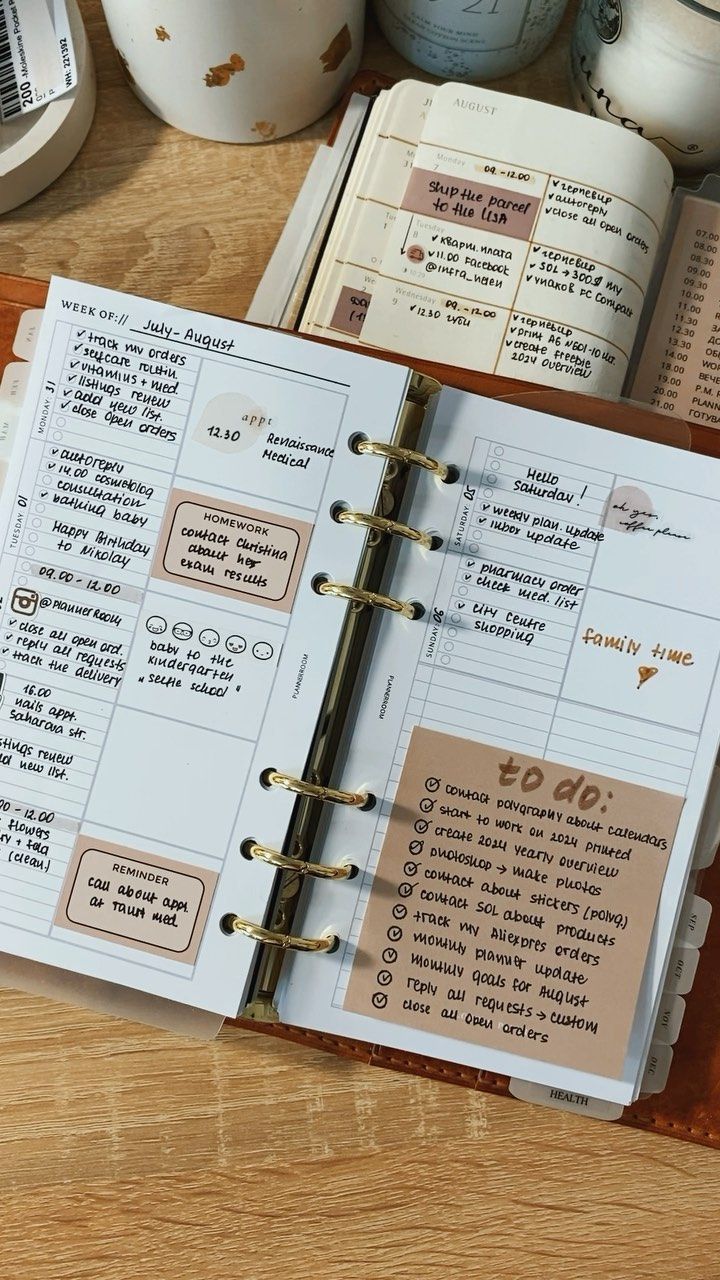 200 -Moleskine Pocket P
WH: 221392
CALM YOUR MIND
AUGUST
Monday
7
09. - 12.00
ship the parcel
to the USA
✓ чернівці
✓ autoreply
✓ close all open orders
Tuesday
8
✓ кварт. плата
✓ 11.00 Facebook
@infra_helen
✓ SOL → 300$ my
✓ упаков FC Compact
Wednesday
9
09. - 12.00
✓ 12.30 зуби
✓ print A6 №601-10 шт.
✓ create freebie
2024 overview
07.00
08.00
08.30
09.00
10.00
11.00
11.30
12.30
13.30
14.00
16.00
19.00
20.00
21.00
WEEK OF:// July - August
MONDAY 31
✓ track my orders
✓ selfcare routin.
✓ vitamins + med.
✓ listings renew
✓ add new list.
✓ close open orders
appt
12.30
Renaissance
Medical
TUESDAY 01
✓ autoreply
✓ 14.00 cosmetolog
consultation
✓ bathing baby
Happy Birthday
to Nikolay
HOMEWORK
contact Christina
about her
exam results
09.00 - 12.00
@PLANNERROOM
✓ close all open ord.
✓ reply all requests
✓ track the delivery
baby to the
kindergarten
"selfie school"
16.00
nails appt.
Saharova str.
new list.
- 12.00
flowers
(clean)
REMINDER
call about appt.
at Taurt med.
PLANNERROOM
PLANNERROOM
SATURDAY 05
Hello
Saturday!
✓ weekly plan. update
✓ inbox update
✓ pharmacy order
✓ check med. list
oh yes,
SUNDAY 06
✓ city centre
shopping
family time
to do:
contact polygraphy about calendars
start to work on 2024 printed
create 2024 yearly overview
photoshop → make photos
contact about stickers (polyg.)
contact SOL about products
track my Aliexpres orders
monthly planner update
monthly goals for August
reply all requests → custom
close all open orders
SEP
OCT
NOV
DEC
HEALTH